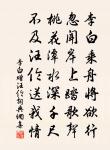 李白乘舟將欲行
忽聞岸上踏歌聲
桃花潭水深千尺
不及汪倫送我情
李白贈汪倫詞典網書